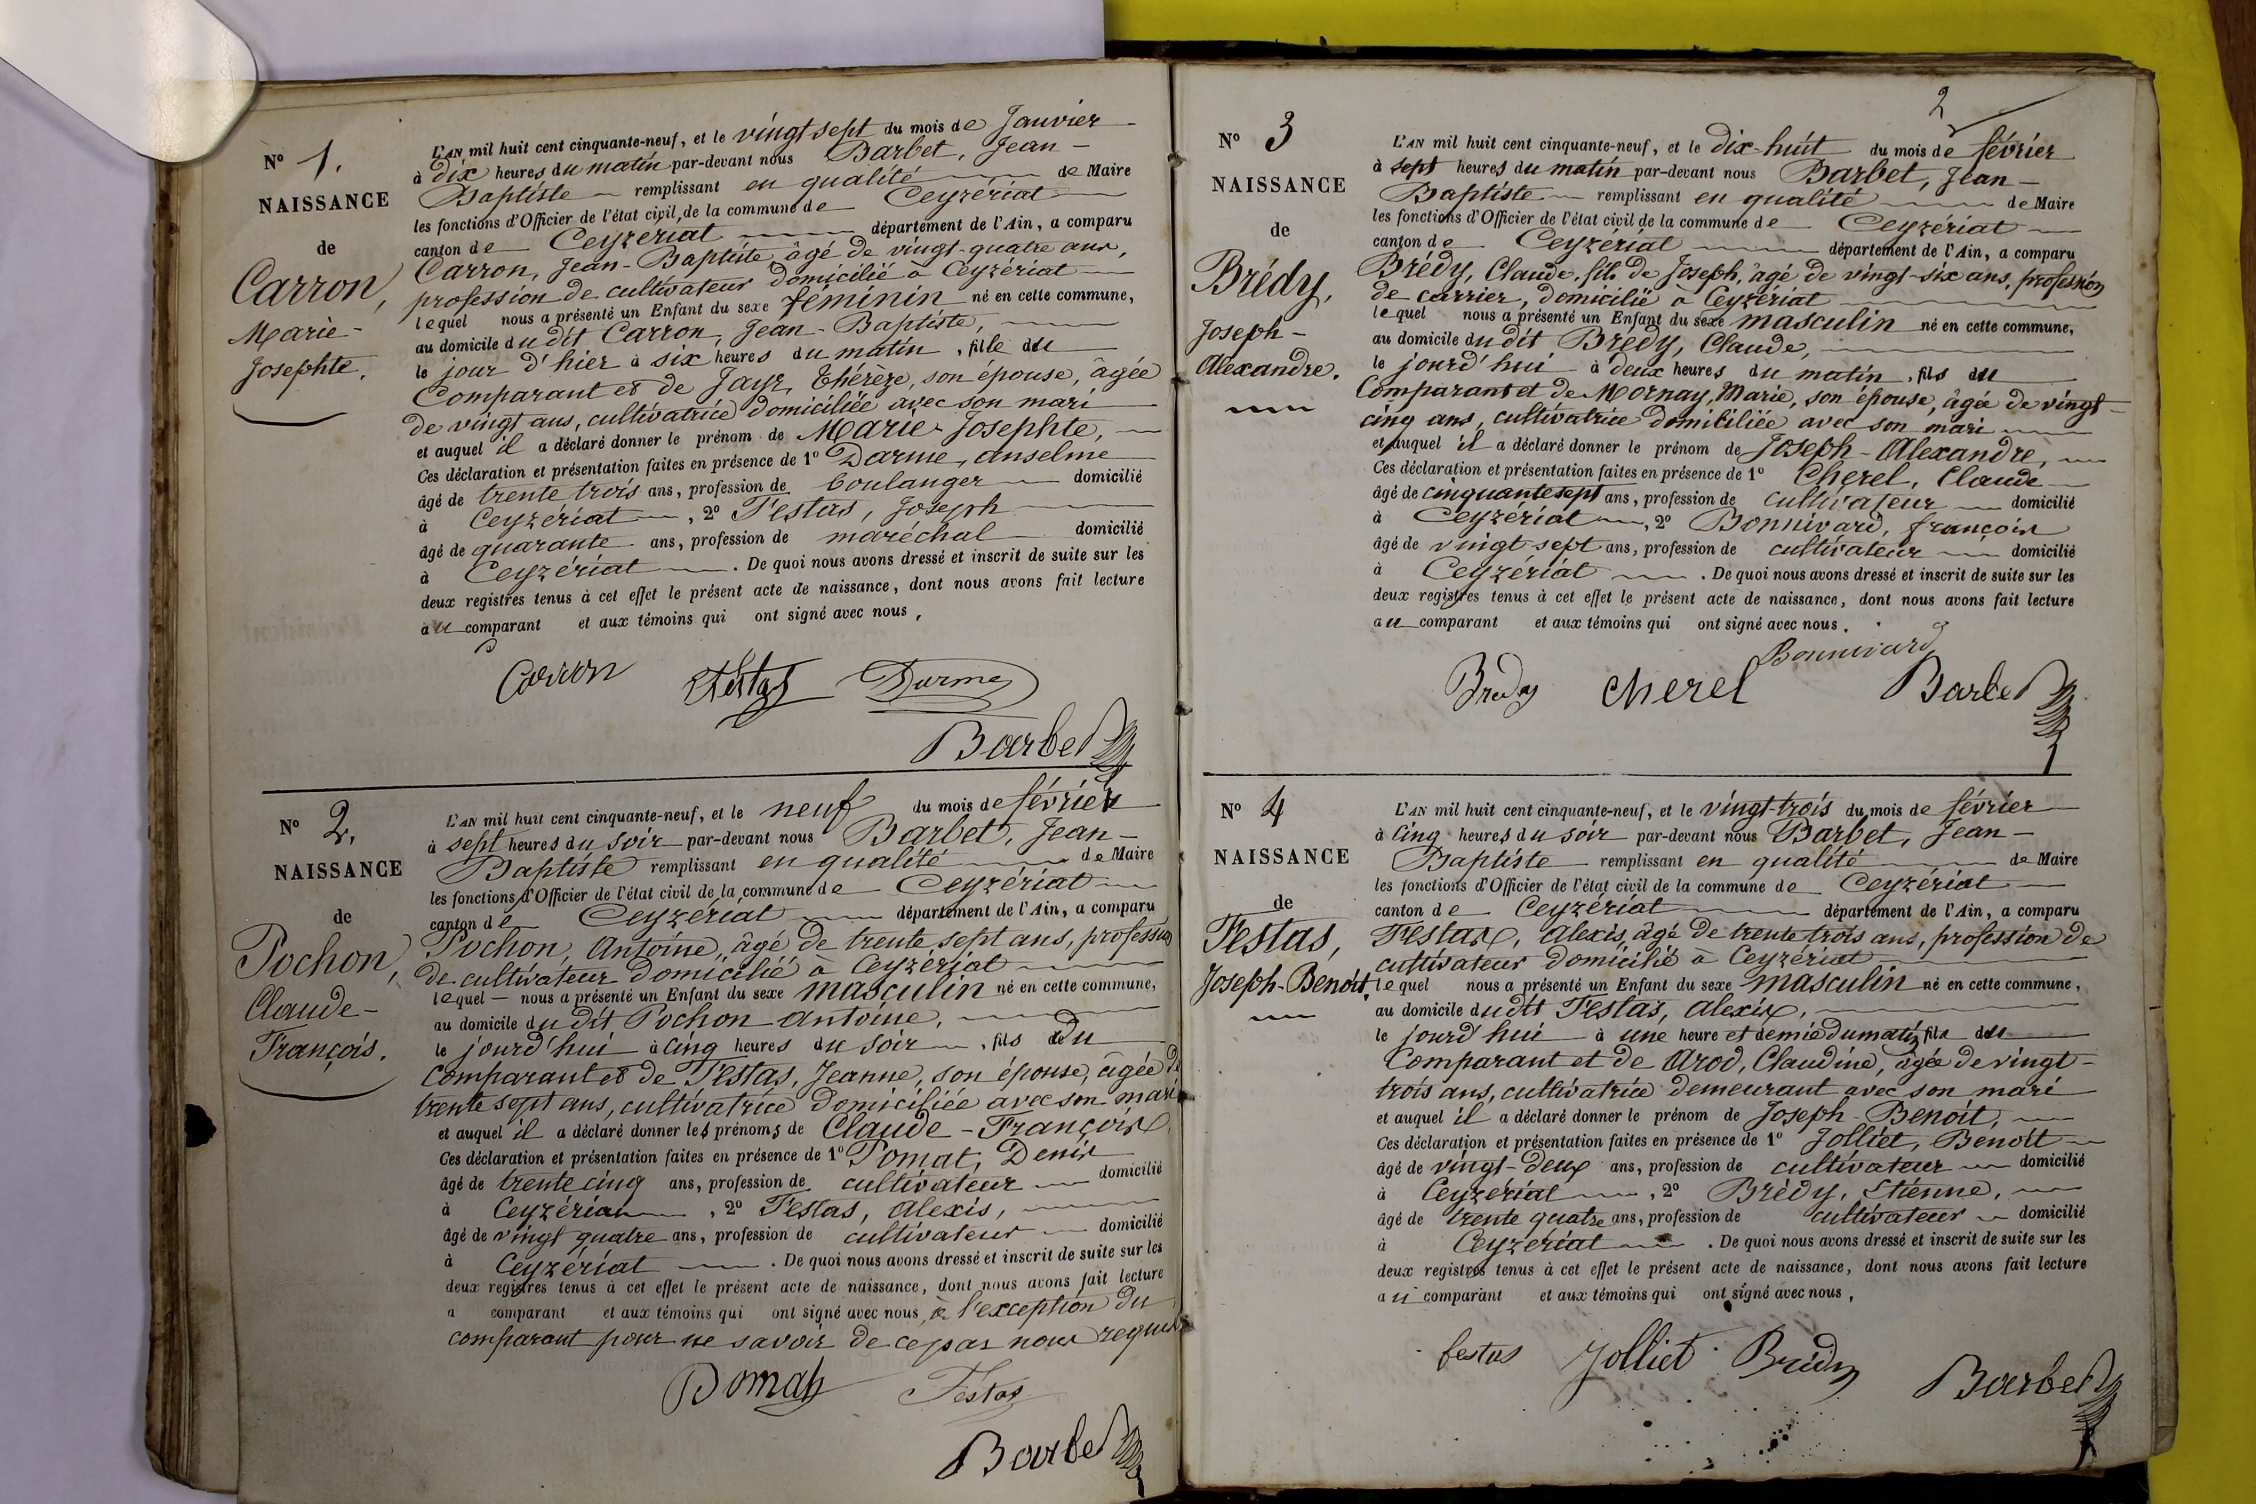 N° 1.
NAISSANCE
de
Carron,
Marie-
Josephte.
L'AN mil huit cent cinquante-neuf, et le vingt sept du mois de Janvier
à dix heures du matin par-devant nous Barbet, Jean-
Baptiste remplissant en qualité de Maire
les fonctions d'Officier de l'état civil de la commune de Ceyzériat
canton de Ceyzériat département de l'Ain, a comparu
Carron, Jean-Baptiste âgé de vingt-quatre ans,
profession de cultivateur domicilié à Ceyzériat
lequel nous a présenté un Enfant du sexe féminin né en cette commune,
au domicile dudit Carron, Jean-Baptiste,
le jour d'hier à six heures du matin, fille du
Comparant et de Jayr, Thérèze, son épouse, âgée
de vingt ans, cultivatrice domiciliée avec son mari
et auquel il a déclaré donner le prénom de Marie-Josephte,
Ces déclaration et présentation faites en présence de 1° Darme, Anselme
âgé de trente trois ans, profession de boulanger domicilié
à Ceyzériat, 2° Testas, Joseph
âgé de quarante ans, profession de maréchal domicilié
à Ceyzériat. De quoi nous avons dressé et inscrit de suite sur les
deux registres tenus à cet effet le présent acte de naissance, dont nous avons fait lecture
au comparant et aux témoins qui ont signé avec nous,
Carron Testas Darme
Barbet
N° 2.
NAISSANCE
de
Pochon,
Claude-
François.
L'AN mil huit cent cinquante-neuf, et le neuf du mois de février
à sept heures du soir par-devant nous Barbet, Jean-
Baptiste remplissant en qualité de Maire
les fonctions d'Officier de l'état civil de la commune de Ceyzériat
canton de Ceyzériat département de l'Ain, a comparu
Pochon, Antoine, âgé de trente sept ans, profession
de cultivateur domicilié à Ceyzériat
lequel nous a présenté un Enfant du sexe masculin né en cette commune,
au domicile dudit Pochon Antoine,
le jourd'hui à cinq heures du soir, fils du
Comparant et de Testas, Jeanne, son épouse, âgée de
trente sept ans, cultivatrice domiciliée avec son mari
et auquel il a déclaré donner les prénoms de Claude-François
Ces déclaration et présentation faites en présence de 1° Pomat, Denis
âgé de trente cinq ans, profession de cultivateur domicilié
à Ceyzériat, 2° Testas, Alexis,
âgé de vingt quatre ans, profession de cultivateur domicilié
à Ceyzériat. De quoi nous avons dressé et inscrit de suite sur les
deux registres tenus à cet effet le présent acte de naissance, dont nous avons fait lecture
a comparant et aux témoins qui ont signé avec nous, à l'exception du
comparant pour ne savoir de ce par nous requis
Pomat Testas
Barbet
2
N° 3
NAISSANCE
de
Brédy,
Joseph-
Alexandre.
L'AN mil huit cent cinquante-neuf, et le dix-huit du mois de février
à sept heures du matin par-devant nous Barbet, Jean-
Baptiste remplissant en qualité de Maire
les fonctions d'Officier de l'état civil de la commune de Ceyzériat
canton de Ceyzériat département de l'Ain, a comparu
Brédy, Claude, fils de Joseph, âgé de vingt-six ans, profession
de carrier, domicilié à Ceyzériat
lequel nous a présenté un Enfant du sexe masculin né en cette commune,
au domicile dudit Brédy, Claude,
le jourd'hui à deux heures du matin, fils du
Comparant et de Mornay, Marie, son épouse, âgée de vingt-
cinq ans, cultivatrice domiciliée avec son mari
et auquel il a déclaré donner le prénom de Joseph-Alexandre,
Ces déclaration et présentation faites en présence de 1° Cherel, Claude
âgé de cinquante sept ans, profession de cultivateur domicilié
à Ceyzériat, 2° Bonnivard, françois
âgé de vingt-sept ans, profession de cultivateur domicilié
à Ceyzériat. De quoi nous avons dressé et inscrit de suite sur les
deux registres tenus à cet effet le présent acte de naissance, dont nous avons fait lecture
au comparant et aux témoins qui ont signé avec nous.
Bonnivard
Bredy cherel Barbet
N° 4
NAISSANCE
de
Testas,
Joseph-Benoit.
L'AN mil huit cent cinquante-neuf, et le vingt-trois du mois de février
à cinq heures du soir par-devant nous Barbet, Jean-
Baptiste remplissant en qualité de Maire
les fonctions d'Officier de l'état civil de la commune de Ceyzériat
canton de Ceyzériat département de l'Ain, a comparu
Testas, Alexis, âgé de trente trois ans, profession de
cultivateur domicilié à Ceyzériat
lequel nous a présenté un Enfant du sexe masculin né en cette commune,
au domicile dudit Testas, Alexis,
le jourd'hui à une heure et demie du matin, fils du
Comparant et de Arod, Claudine, âgée de vingt-
trois ans, cultivatrice demeurant avec son mari
et auquel il a déclaré donner le prénom de Joseph-Benoit,
Ces déclaration et présentation faites en présence de 1° Jolliet, Benoit
âgé de vingt-deux ans, profession de cultivateur domicilié
à Ceyzériat, 2° Brédy, Etienne,
âgé de trente quatre ans, profession de cultivateur domicilié
à Ceyzériat. De quoi nous avons dressé et inscrit de suite sur les
deux registres tenus à cet effet le présent acte de naissance, dont nous avons fait lecture
au comparant et aux témoins qui ont signé avec nous,
testas Jolliet Brédy
Barbet